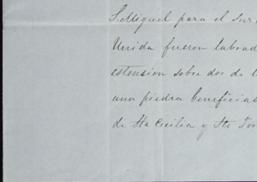 S. Miguel para el Sur
Unida fueron labrad
estension sobre dos de l
una piedra beneficia
de Sta Cecilia y Sto